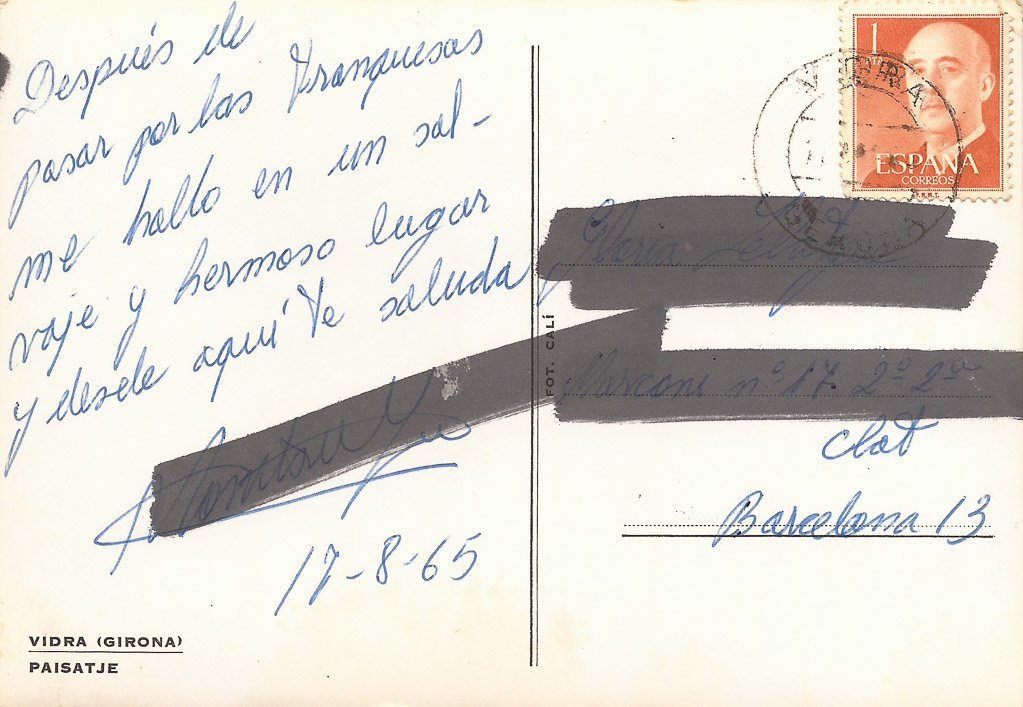 Después de
pasar por las Franquesas
me hallo en un sal-
vaje y hermoso lugar
y desde aquí te saluda
17-8-65
VIDRA (GIRONA)
PAISATJE
FOT. CALÍ
1
PTA
ESPAÑA
CORREOS
VIDRA
Clot
Barcelona 13